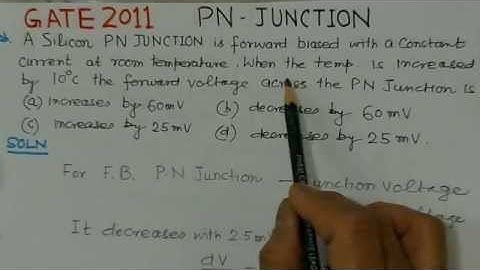 GATE 2011 PN - JUNCTION
A Silicon PN JUNCTION is forward biased with a Constant
Current at room temperature. When the temp. is increased
by 10°C the forward voltage across the PN Junction is
(a) increases by 60mV (b) decreases by 60 mV
(c) increases by 25mV (d) decreases by 25mV.
SOLN
For F.B. PN Junction Junction Voltage
It decreases with 2.5 m
dV